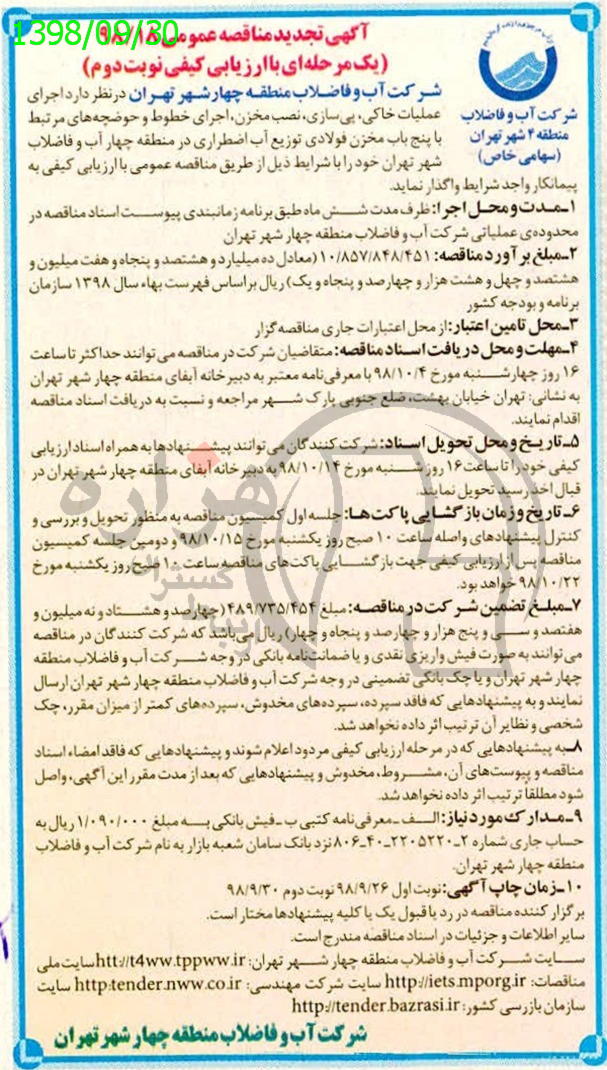 1398/09/30
آگهی تجدید مناقصه عمومی ۹۸/۱۸
(یک مرحله‌ای با ارزیابی کیفی نوبت دوم)
شرکت آب و فاضلاب
منطقه ۴ شهر تهران
(سهامی خاص)
شرکت آب و فاضلاب منطقه چهار شهر تهران در نظر دارد اجرای
عملیات خاکی، پی‌سازی، نصب مخزن، اجرای خطوط و حوضچه‌های مرتبط
با پنج باب مخزن فولادی توزیع آب اضطراری در منطقه چهار آب و فاضلاب
شهر تهران خود را با شرایط ذیل از طریق مناقصه عمومی با ارزیابی کیفی به
پیمانکار واجد شرایط واگذار نماید.
۱ـ مدت و محل اجرا: ظرف مدت شش ماه طبق برنامه زمانبندی پیوست اسناد مناقصه در
محدوده‌ی عملیاتی شرکت آب و فاضلاب منطقه چهار شهر تهران
۲ـ مبلغ برآورد مناقصه: ۱۰/۸۵۷/۸۴۸/۴۵۱ (معادل ده میلیارد و هشتصد و پنجاه و هفت میلیون و
هشتصد و چهل و هشت هزار و چهارصد و پنجاه و یک) ریال براساس فهرست بهاء سال ۱۳۹۸ سازمان
برنامه و بودجه کشور
۳ـ محل تامین اعتبار: از محل اعتبارات جاری مناقصه‌گزار
۴ـ مهلت و محل دریافت اسناد مناقصه: متقاضیان شرکت در مناقصه می‌توانند حداکثر تا ساعت
۱۶ روز چهارشنبه مورخ ۹۸/۱۰/۴ با معرفی‌نامه معتبر به دبیرخانه آبفای منطقه چهار شهر تهران
به نشانی: تهران خیابان بهشت، ضلع جنوبی پارک شهر مراجعه و نسبت به دریافت اسناد مناقصه
اقدام نمایند.
۵ـ تاریخ و محل تحویل اسناد: شرکت کنندگان می‌توانند پیشنهادها به همراه اسناد ارزیابی
کیفی خود را تا ساعت ۱۶ روز شنبه مورخ ۹۸/۱۰/۱۴ به دبیرخانه آبفای منطقه چهار شهر تهران در
قبال اخذ رسید تحویل نمایند.
۶ـ تاریخ و زمان بازگشایی پاکت‌ها: جلسه اول کمیسیون مناقصه به منظور تحویل و بررسی و
کنترل پیشنهادهای واصله ساعت ۱۰ صبح روز یکشنبه مورخ ۹۸/۱۰/۱۵ و دومین جلسه کمیسیون
مناقصه پس از ارزیابی کیفی جهت بازگشایی پاکت‌های مناقصه ساعت ۱۰ صبح روز یکشنبه مورخ
۹۸/۱۰/۲۲ خواهد بود.
۷ـ مبلغ تضمین شرکت در مناقصه: مبلغ ۴۸۹/۷۳۵/۴۵۴ (چهارصد و هشتاد و نه میلیون و
هفتصد و سی و پنج هزار و چهارصد و پنجاه و چهار) ریال می‌باشد که شرکت کنندگان در مناقصه
می‌توانند به صورت فیش واریزی نقدی و یا ضمانت‌نامه بانکی در وجه شرکت آب و فاضلاب منطقه
چهار شهر تهران و یا چک بانکی تضمینی در وجه شرکت آب و فاضلاب منطقه چهار شهر تهران ارسال
نمایند و به پیشنهادهایی که فاقد سپرده، سپرده‌های مخدوش، سپرده‌های کمتر از میزان مقرر، چک
شخصی و نظایر آن ترتیب اثر داده نخواهد شد.
۸ـ به پیشنهادهایی که در مرحله ارزیابی کیفی مردود اعلام شوند و پیشنهادهایی که فاقد امضاء اسناد
مناقصه و پیوست‌های آن، مشروط، مخدوش و پیشنهادهایی که بعد از مدت مقرر این آگهی، واصل
شود مطلقا ترتیب اثر داده نخواهد شد.
۹ـ مدارک مورد نیاز: الف ـ معرفی‌نامه کتبی ب ـ فیش بانکی به مبلغ ۱/۰۹۰/۰۰۰ ریال به
حساب جاری شماره ۲ـ۲۲۰۵۲۲۰ـ۴۰ـ۸۰۶ نزد بانک سامان شعبه بازار به نام شرکت آب و فاضلاب
منطقه چهار شهر تهران.
۱۰ـ زمان چاپ آگهی: نوبت اول ۹۸/۹/۲۶ نوبت دوم ۹۸/۹/۳۰
برگزار کننده مناقصه در رد یا قبول یک یا کلیه پیشنهادها مختار است.
سایر اطلاعات و جزئیات در اسناد مناقصه مندرج است.
سایت شرکت آب و فاضلاب منطقه چهار شهر تهران: htt://t4ww.tppww.ir سایت ملی
مناقصات: http://iets.mporg.ir سایت شرکت مهندسی: http:tender.nww.co.ir سایت
سازمان بازرسی کشور: http://tender.bazrasi.ir
شرکت آب و فاضلاب منطقه چهار شهر تهران